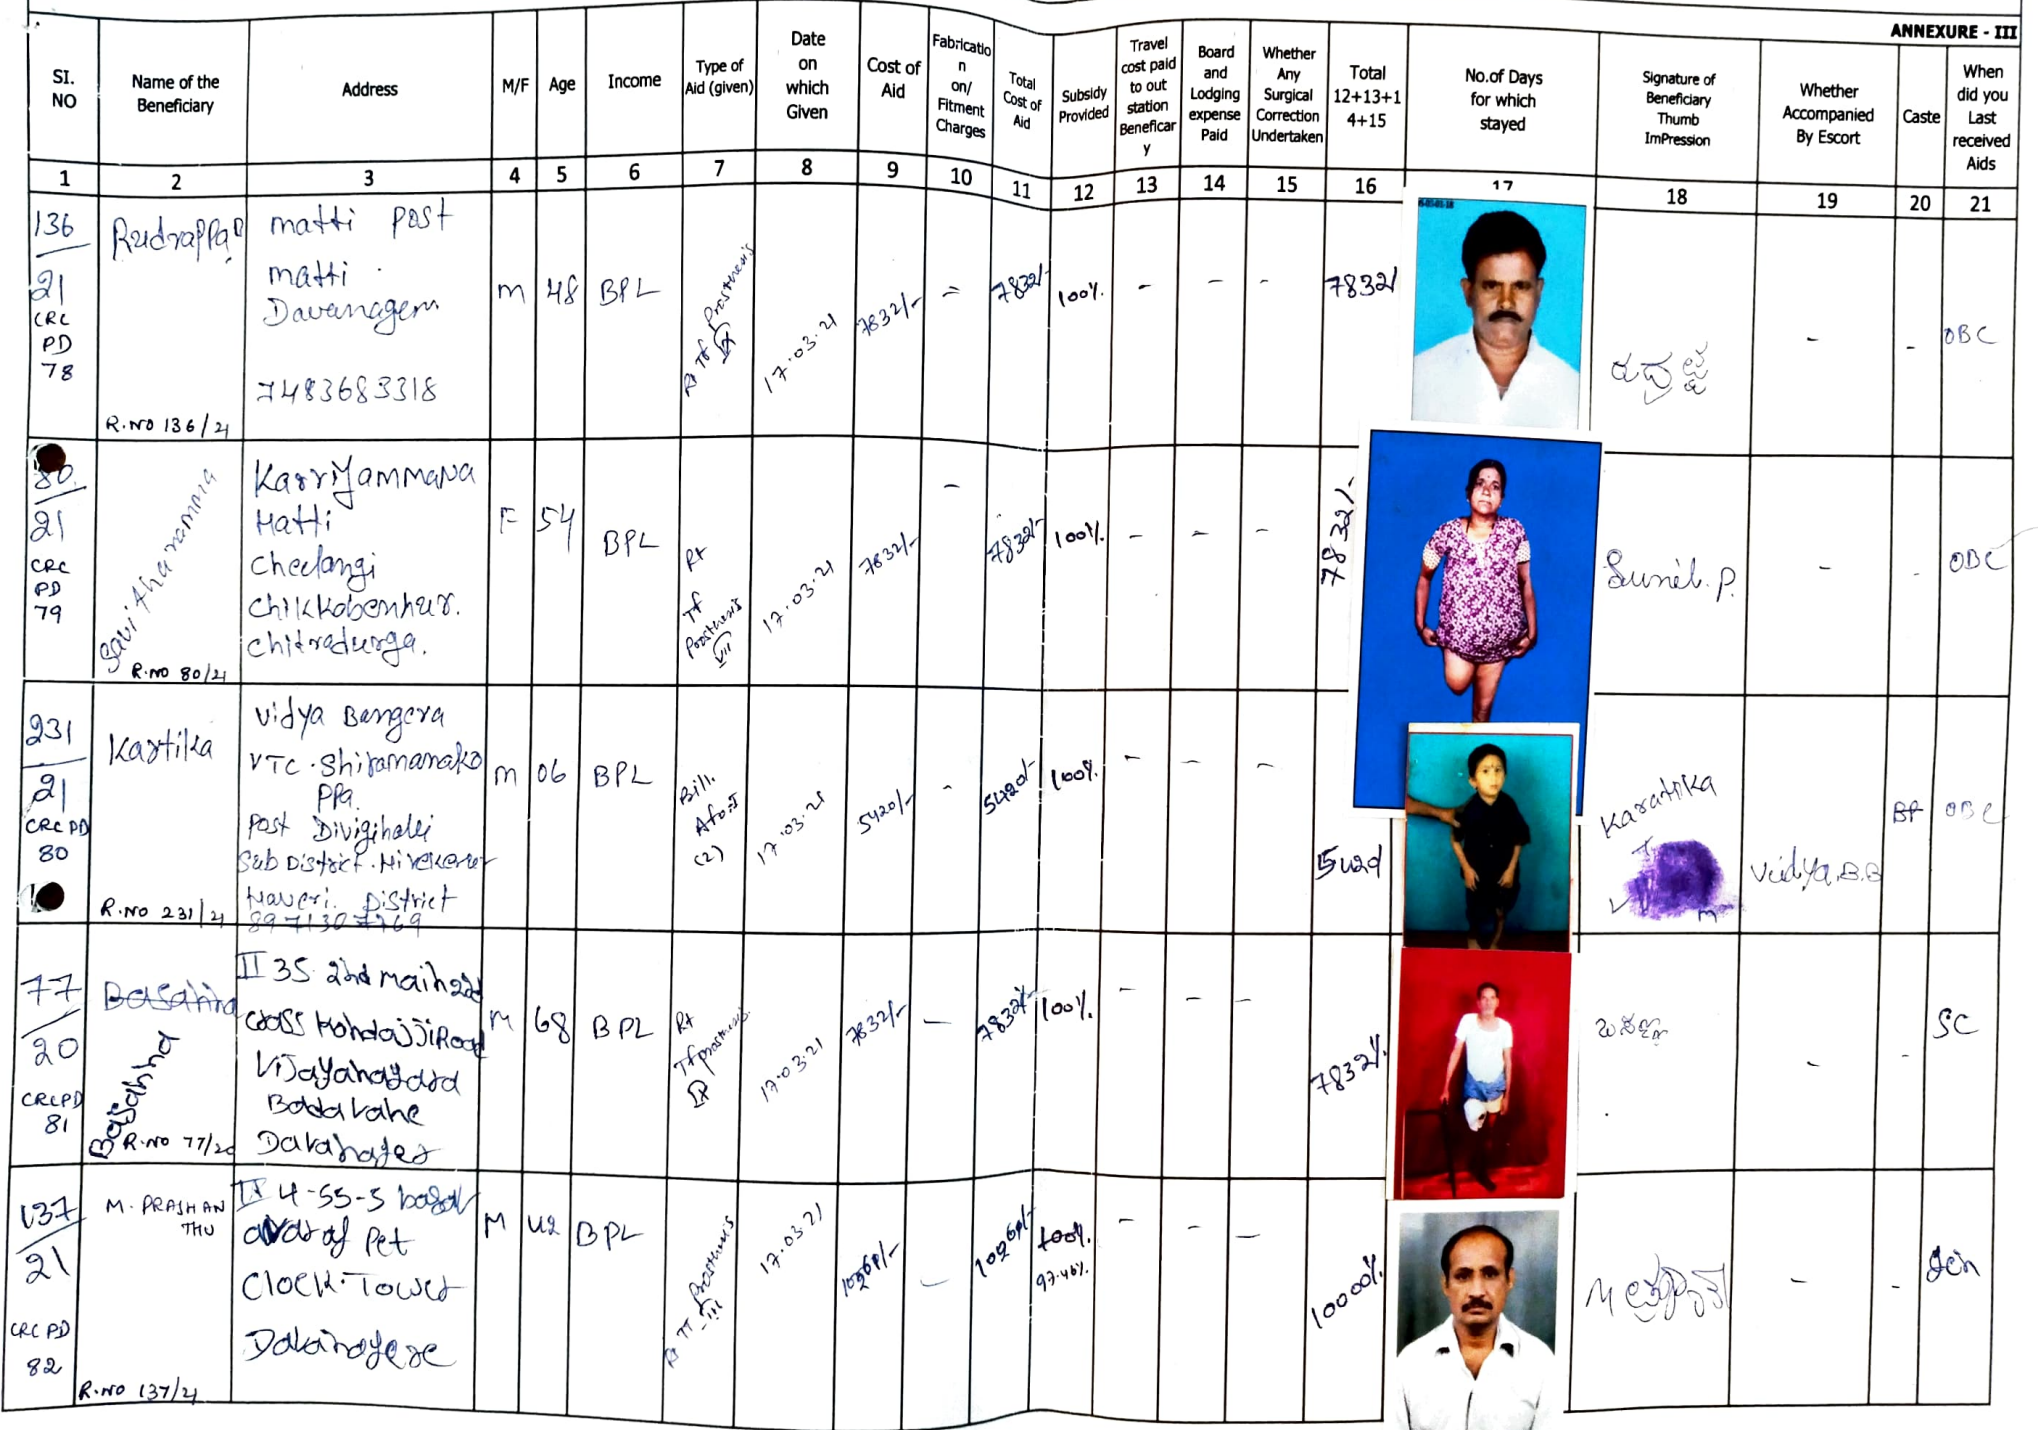 ANNEXURE - III
SI. NO
Name of the Beneficiary
Address
M/F
Age
Income
Type of Aid (given)
Date on which Given
Cost of Aid
Fabricatio n on/ Fitment Charges
Total Cost of Aid
Subsidy Provided
Travel cost paid to out station Beneficar y
Board and Lodging expense Paid
Whether Any Surgical Correction Undertaken
Total 12+13+1 4+15
No.of Days for which stayed
Signature of Beneficiary Thumb ImPression
Whether Accompanied By Escort
Caste
When did you Last received Aids
1 2 3 4 5 6 7 8 9 10 11 12 13 14 15 16 17 18 19 20 21
136/21
CRC PD 78
Rudrappa
R.NO 136/21
matti post
matti
Davanagere
7483683318
M 48 BPL
Rt TF Prosthesis IX
17.03.21
7832/-
-
7832/-
100%
- - -
7832/
ರುದ್ರಪ್ಪ
- -
OBC
80/21
CRC PD 79
Savitharamma
R.NO 80/21
Karriyammana
Hatti
Cheelangi
Chikkobenhur.
Chitradurga.
F 54 BPL
Rt TF Prosthesis VII
17.03.21
7832/-
-
7832/-
100%
- - -
7832/-
Sunil.P.
- -
OBC
231/21
CRC PD 80
Kartika
R.NO 231/21
Vidya Bangera
VTC.Shiramanako
PPa.
Post Divigihalli
Sub District.Hirekerur
Haveri. District
8971307769
M 06 BPL
Bill. Afo-I (2)
17.03.21
5420/-
-
5420/-
100%
- - -
Karatika
Vidya.B.B
BP
OBC
77/20
CRCPD 81
Basanna
R.NO 77/20
II 35 2nd main 2nd
cross Kondajji Road
Vijayanagara
Badavane
M 68 BPL
Rt TF prosthesis IX
17.03.21
7832/-
-
7832/-
100%
- - -
7832/.
ಬಸಣ್ಣ
- -
SC
137/21
CRC PD 82
M. PRASHAN
THU
R.NO 137/21
4-55-5
Pet
Clock.Tower
M 42 BPL
Rt TT Prosthesis III
17.03.21
10260/-
-
10260/-
100%
97.46%
- - -
10000/.
- -